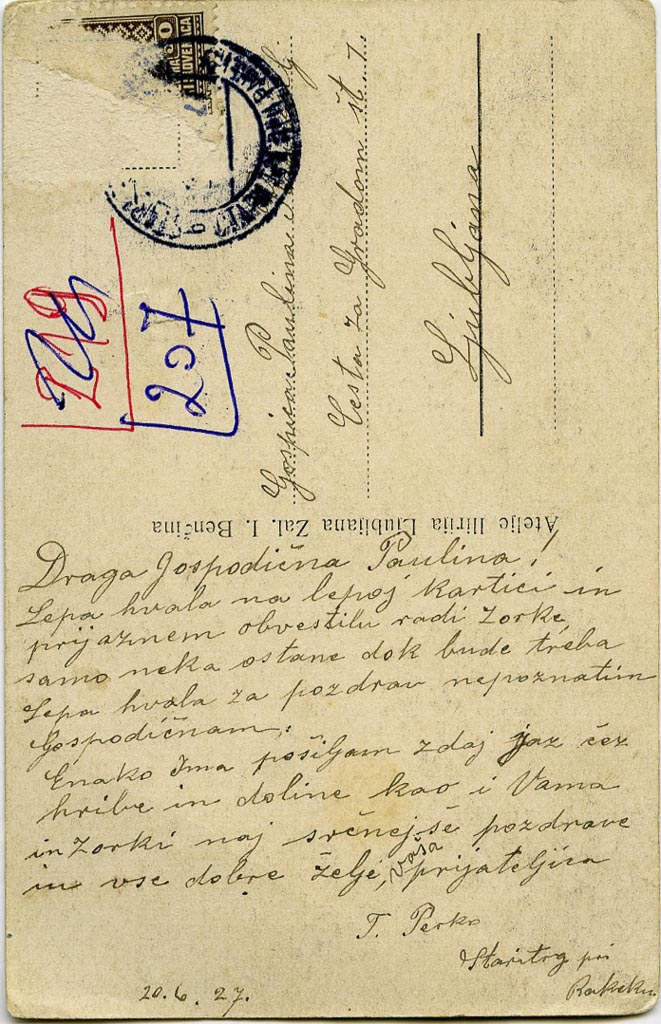 Draga Gospodična Paulina!
Lepa hvala na lepoj kartici in
prijaznem obvestilu radi Zorke,
samo neka ostane dok bude treba
Lepa hvala za pozdrav nepoznatim
Gospodičnam.
Enako Ima pošiljam zdaj jaz čez
hribe in doline kao i Vama
in Zorki naj srčnejše pozdrave
in vse dobre želje, vaša prijateljica
T. Perko
Staritrg pri
Rakeku.
20.6.27.
Gospica Paulina
Cesta za Gradom št. 7.
Ljubljana
Atelje Ilirija Ljubljana Zal. I. Benčina
207